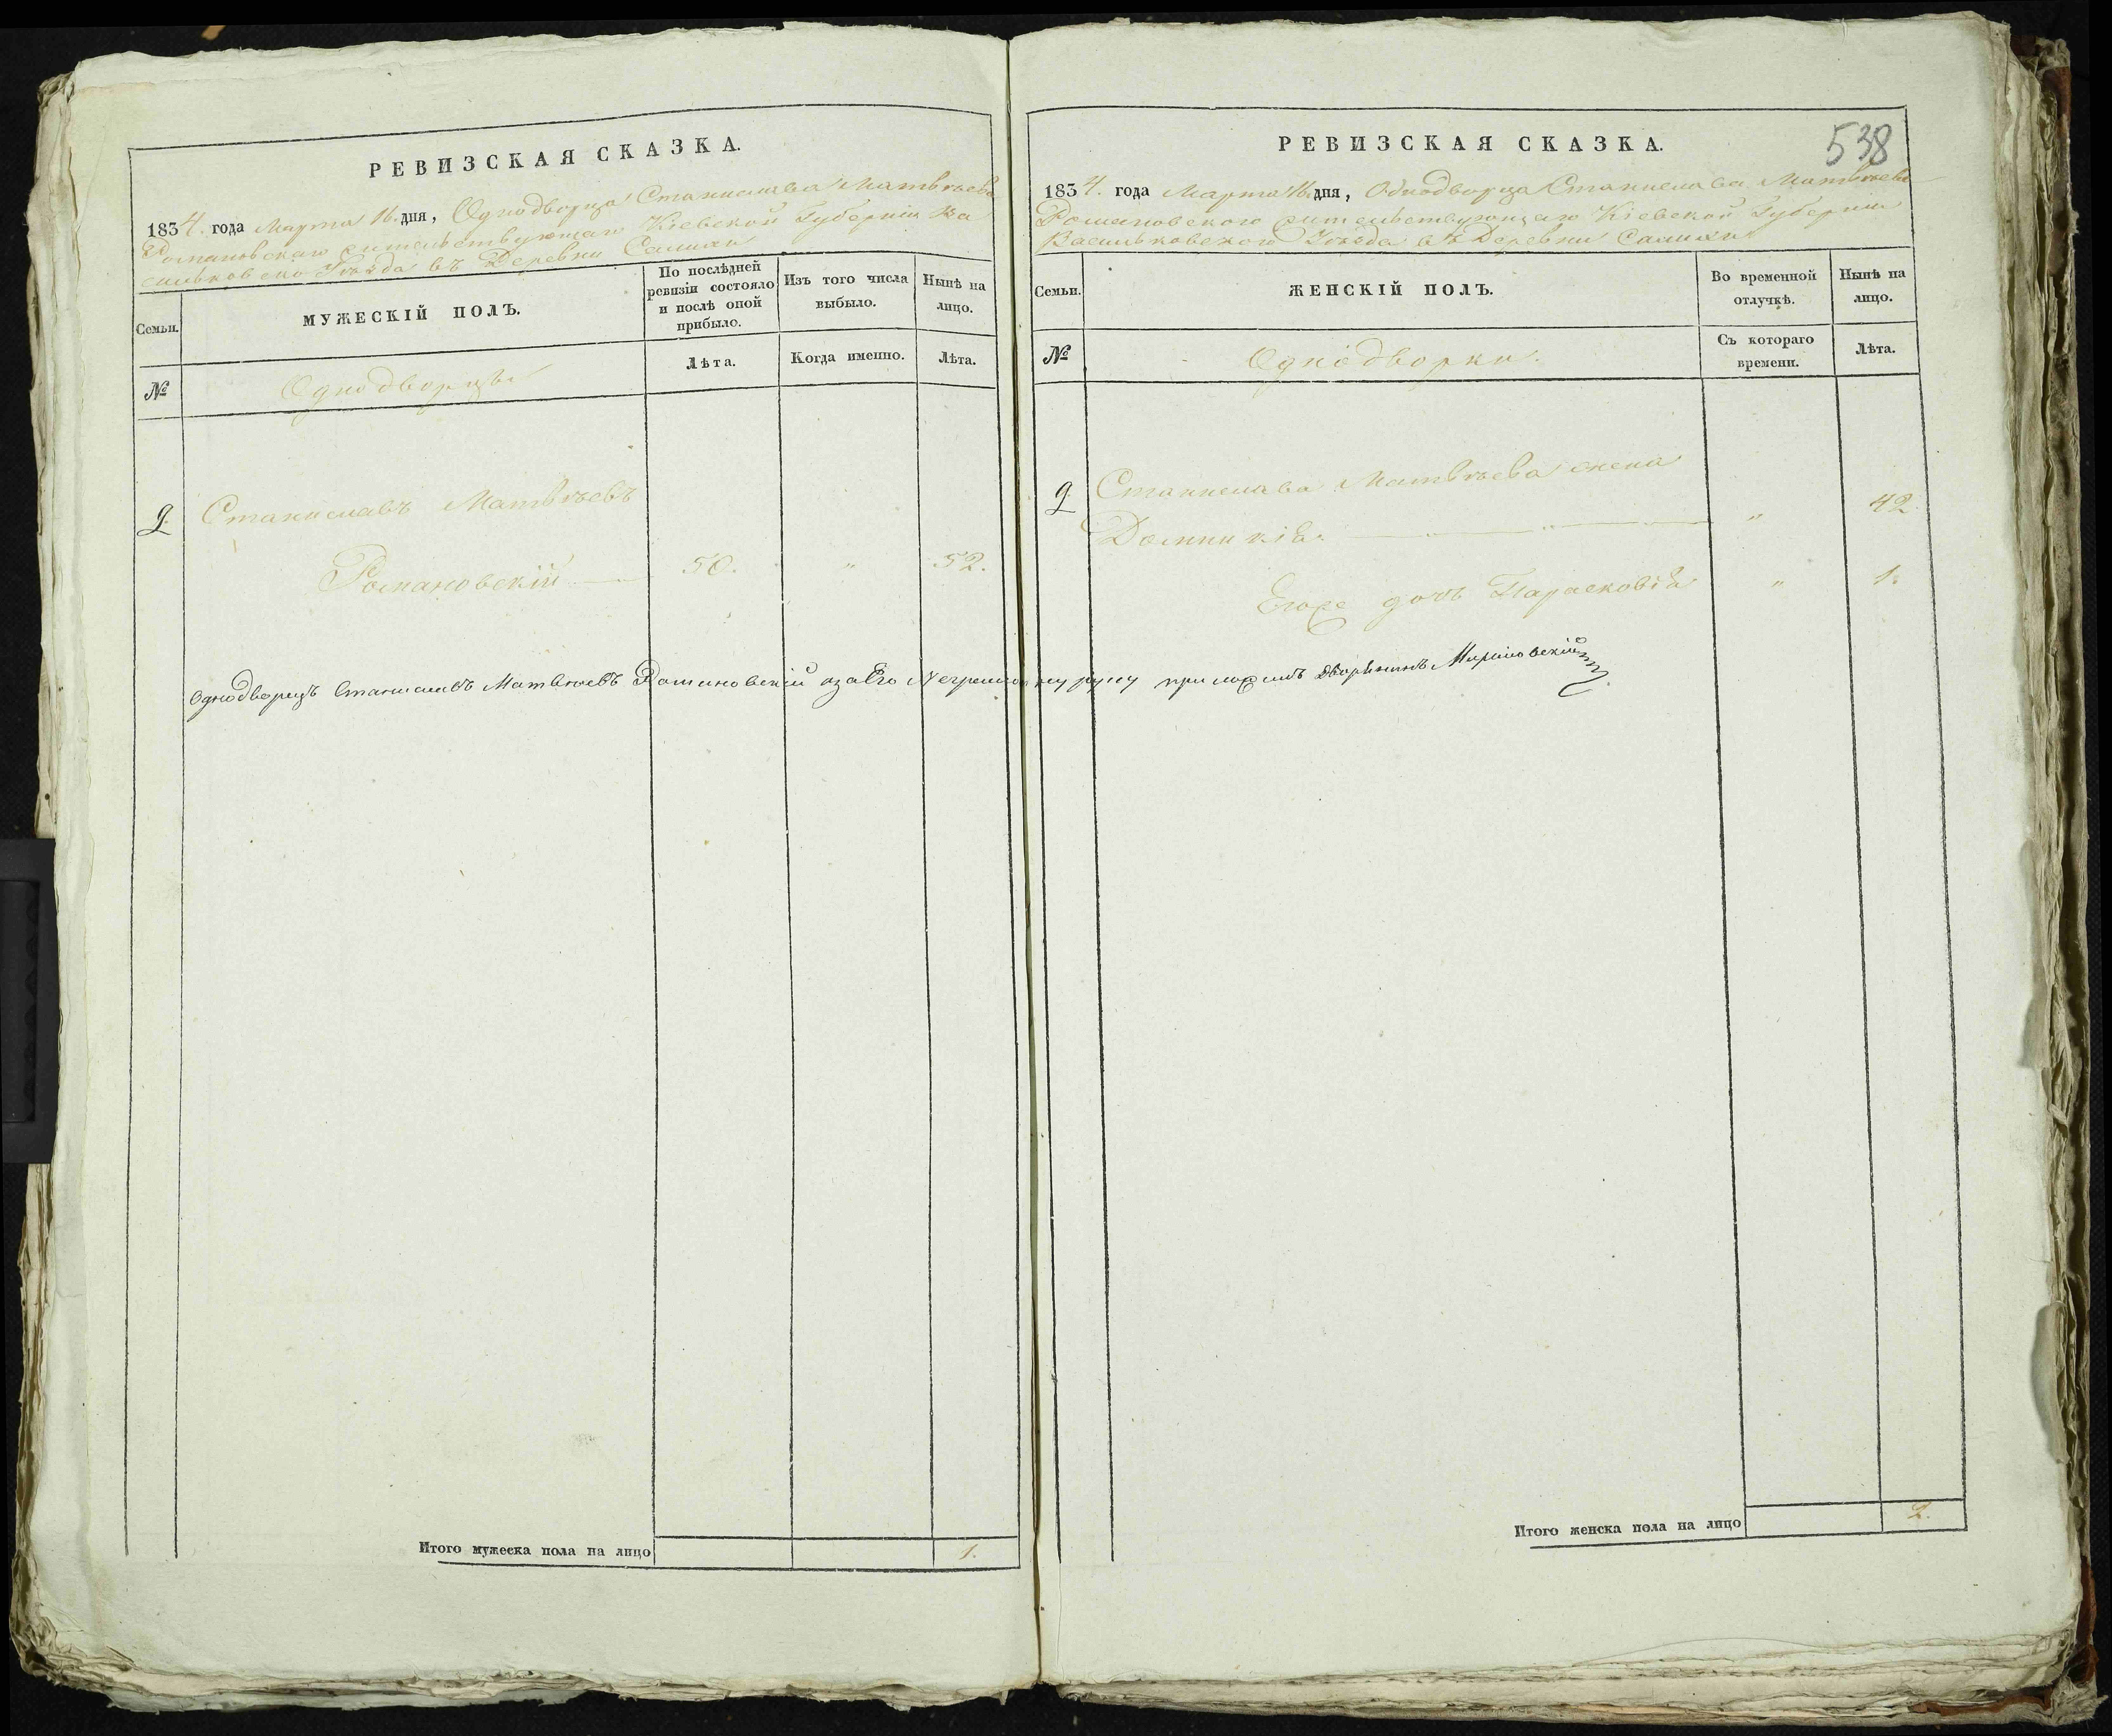 РЕВИЗСКАЯ СКАЗКА.
1834. года Марта 16. дня, Однодворца Станислава Матвѣева
Романовскаго жительствующаго Кіевской Губерніи Ва
сильковско Уѣзда въ Деревни
Семьи.
МУЖЕСКІЙ ПОЛЪ.
По послѣдней
ревизіи состояло
и послѣ оной
прибыло.
Изъ того числа
выбыло.
Нынѣ на
лицо.
№
Однодворцы
Лѣта.
Когда именно.
Лѣта.
9. Станиславъ Матвѣевъ
Романовскій 50. " 52.
Однодворецъ Станиславъ Матвѣевъ Романовскій азаЕго Неграмотну руку приложилъ дворянинъ
Итого мужеска пола на лицо 1.
РЕВИЗСКАЯ СКАЗКА.
538
1834. года Марта 16. дня, Однодворца Станислава Матвѣева
Романовского жительствующаго Кіевской Губерніи
Васильковского Уѣзда въ Деревни
Семьи.
ЖЕНСКІЙ ПОЛЪ.
Во временной
отлучкѣ.
Нынѣ на
лицо.
№
Однодворки.
Съ котораго
времени.
Лѣта.
9. Станислава Матвѣева жена
Домникія " 42
Егоже дочь Парасковія " 1.
Итого женска пола на лицо 2.